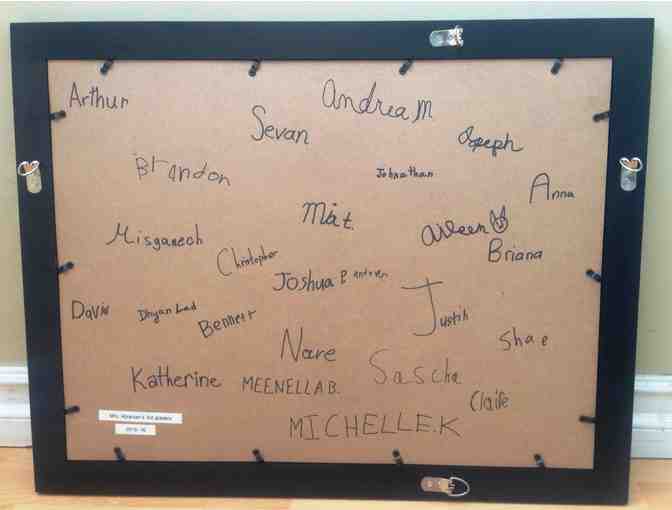 Arthur
Andrea M
Sevan
Joseph
Brandon
Johnathan
Anna
Mat.
Misganech
Christopher
Aileen
Briana
Joshua P
Davis
Dhyan Lad
Bennett
Justin
Shae
Nare
Sascha
Katherine
MEENELLA B.
Claire
MICHELLE.K
2015-16